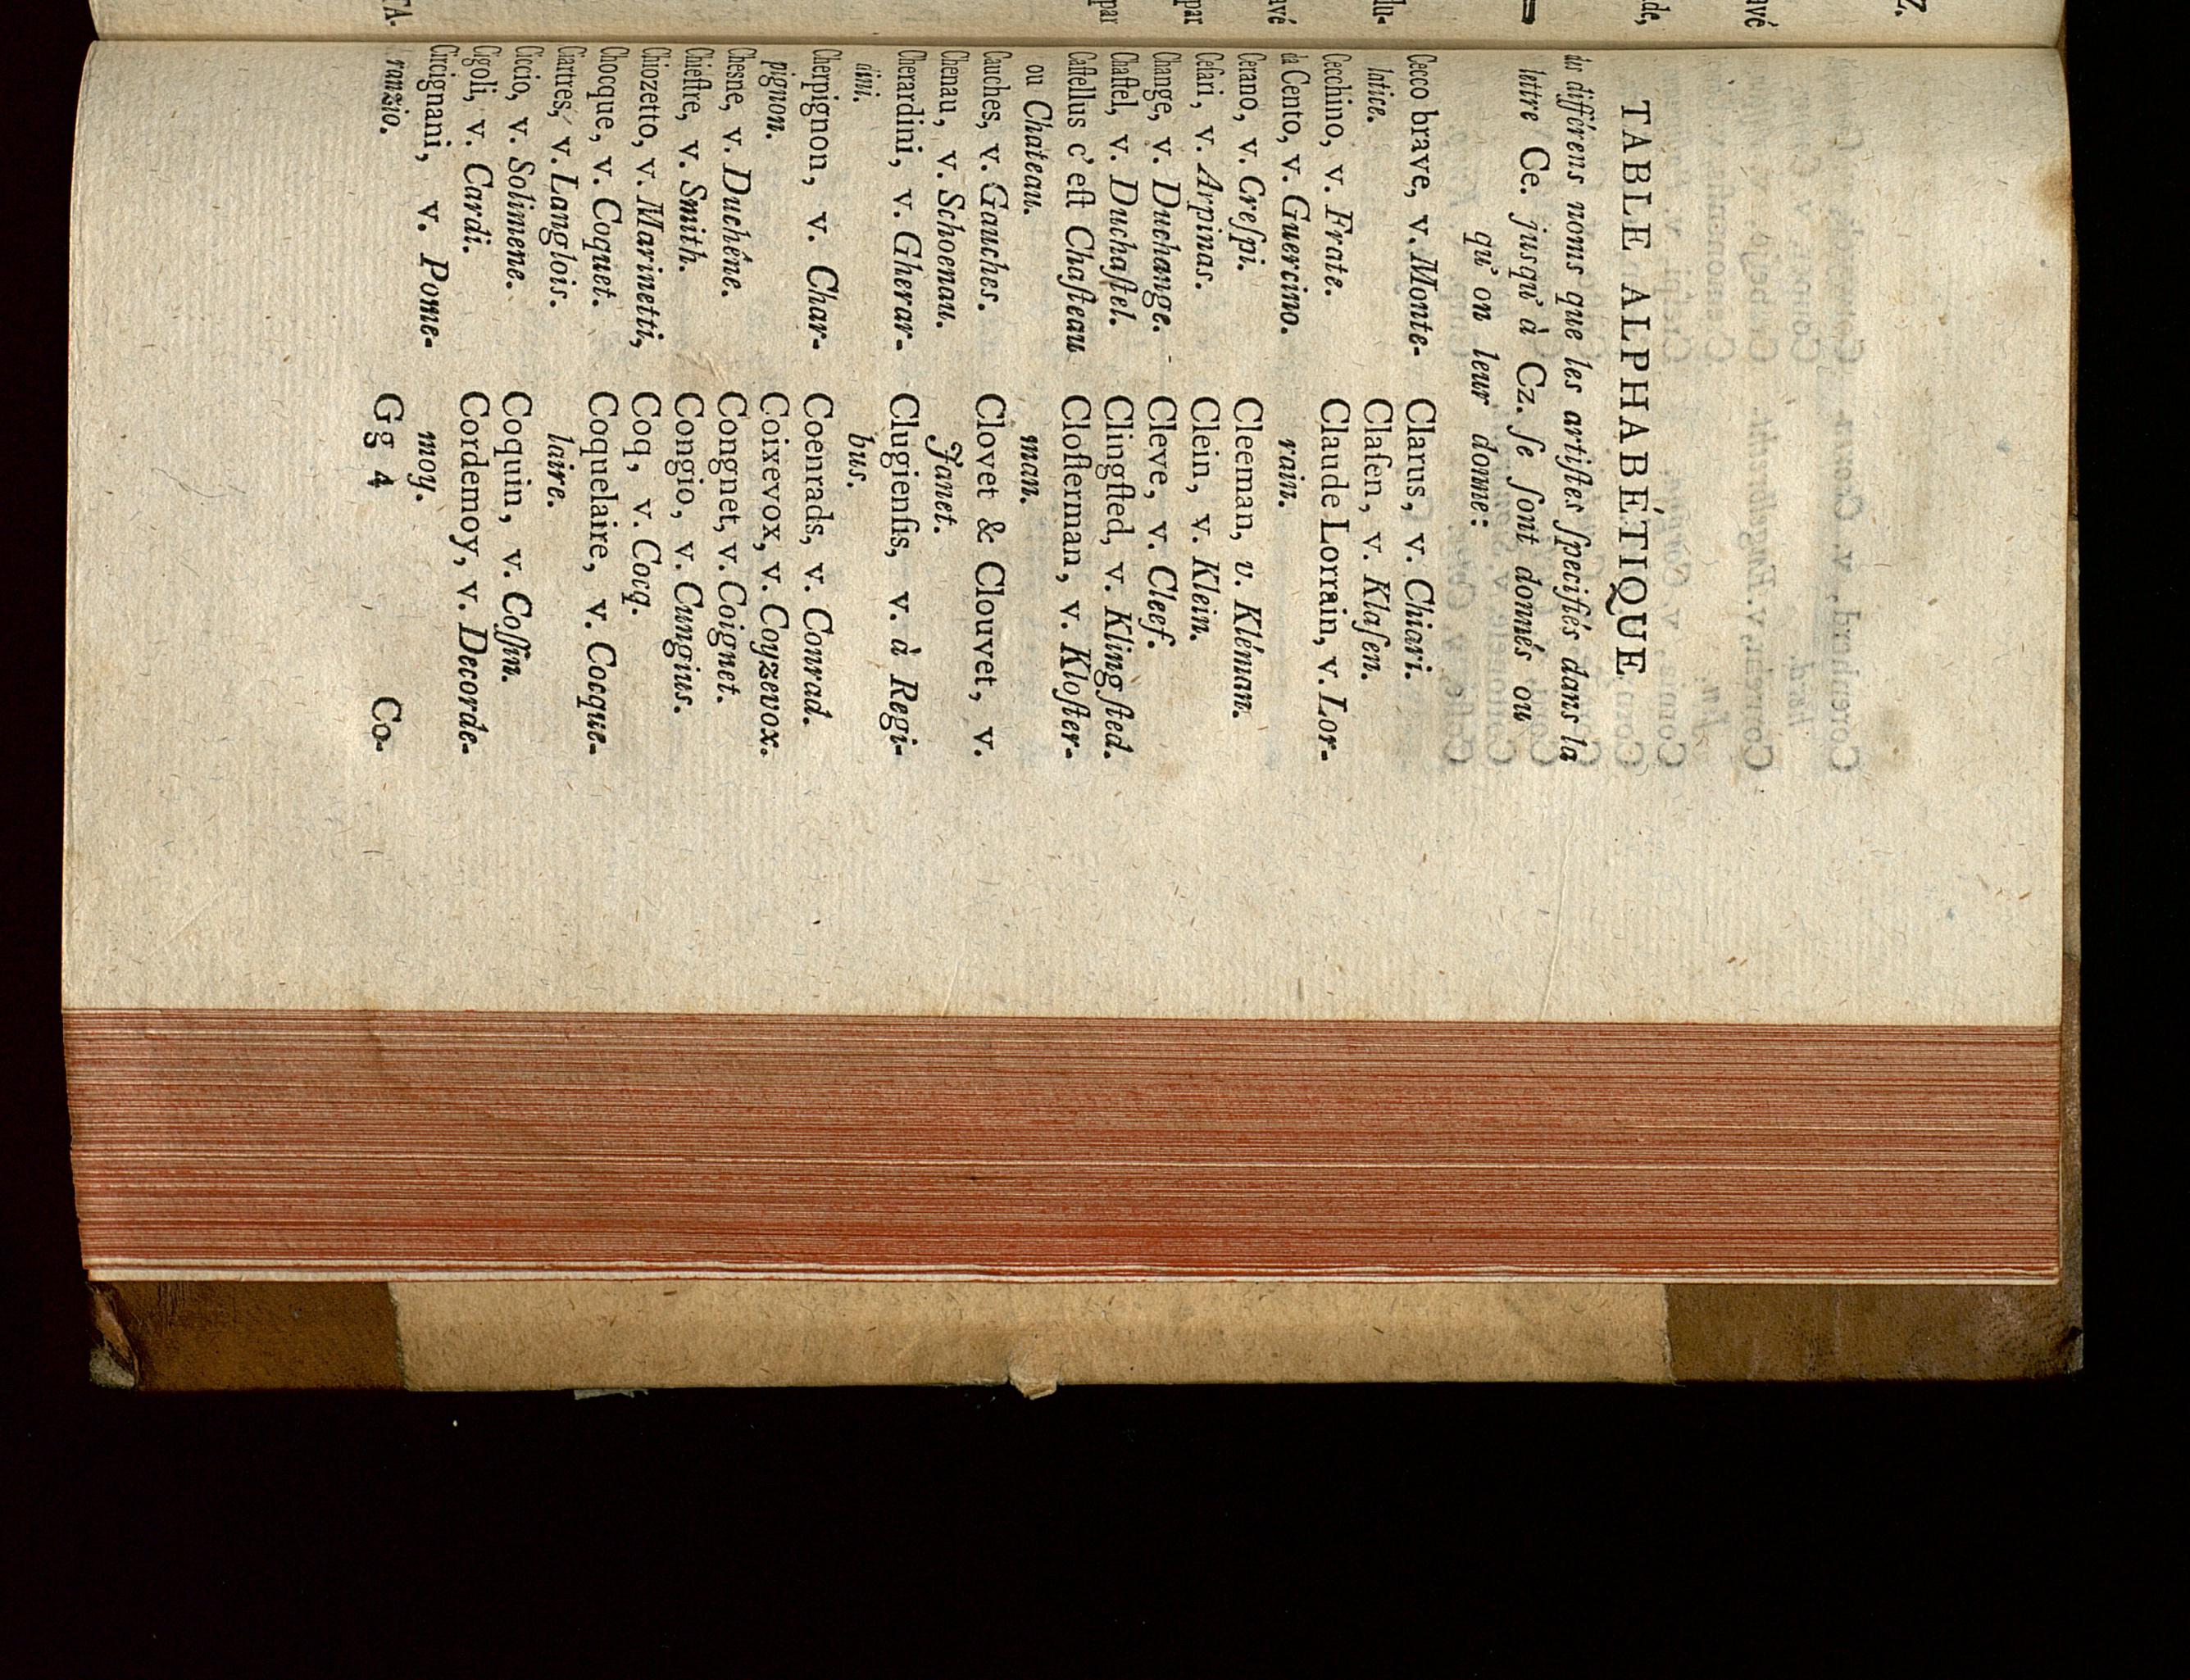 TABLE ALPHABÉTIQUE
des différens noms que les artiſtes ſpecifiés dans la
lettre Ce. jusqu'à Cz. ſe ſont donnés ou
qu'on leur donne:
Cecco brave, v. Monte-
latice.
Cecchino, v. Frate.
da Cento, v. Guercino.
Cerano, v. Creſpi.
Ceſari, v. Arpinas.
Change, v. Duchange.
Chaſtel, v. Duchaſtel.
Caſtellus c'eſt Chaſteau
ou Chateau.
Cauches, v. Gauches.
Chenau, v. Schoenau.
Cherardini, v. Gherar-
dini.
Cherpignon, v. Char-
pignon.
Chesne, v. Duchêne.
Chieſtre, v. Smith.
Chiozetto, v. Marinetti,
Chocque, v. Coquet.
Ciartres, v. Langlois.
Ciccio, v. Solimene.
Cigoli, v. Cardi.
Circignani, v. Pome-
ranzio.
Clarus, v. Chiari.
Claſen, v. Klaſen.
Claude Lorrain, v. Lor-
rain.
Cleeman, v. Kléman.
Clein, v. Klein.
Cleve, v. Cleef.
Clingſted, v. Klingſted.
Cloſterman, v. Kloſter-
man.
Clovet & Clouvet, v.
Janet.
Clugienſis, v. à Regi-
bus.
Coenrads, v. Conrad.
Coixevox, v. Coyzevox.
Congnet, v. Coignet.
Congio, v. Cungius.
Coq, v. Cocq.
Coquelaire, v. Cocque-
laire.
Coquin, v. Coſſin.
Cordemoy, v. Decorde-
moy.
Gg 4
Co-